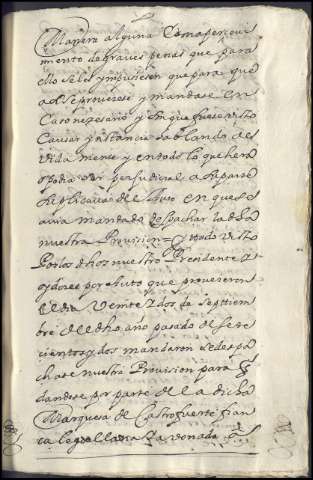 Manera alguna Con aperceui
miento de graues penas que para
ello se les ympusiesen que para que
asi se proueiese y mandase en
Caso nezesario y sin que fuese visto
Causar ynstancia hablando de
vida mente y en todo lo que hera
o podia ser perjudicial a su parte
suplicaua del Auto en que se
auia mandado despachar la dha
nuestra Prouision = Y todo visto
Por los dhos nuestro Presidente y
oydores por Auto que proueieron
el dia Veinte y dos de Septtiem
bre de el dho año pasado de sete
cientos y dos mandaron se despa
chase nuestra Prouision para q
dandose por parte de la dicha
Marquesa de Castrofuerte fian
ca lega llana y abonada